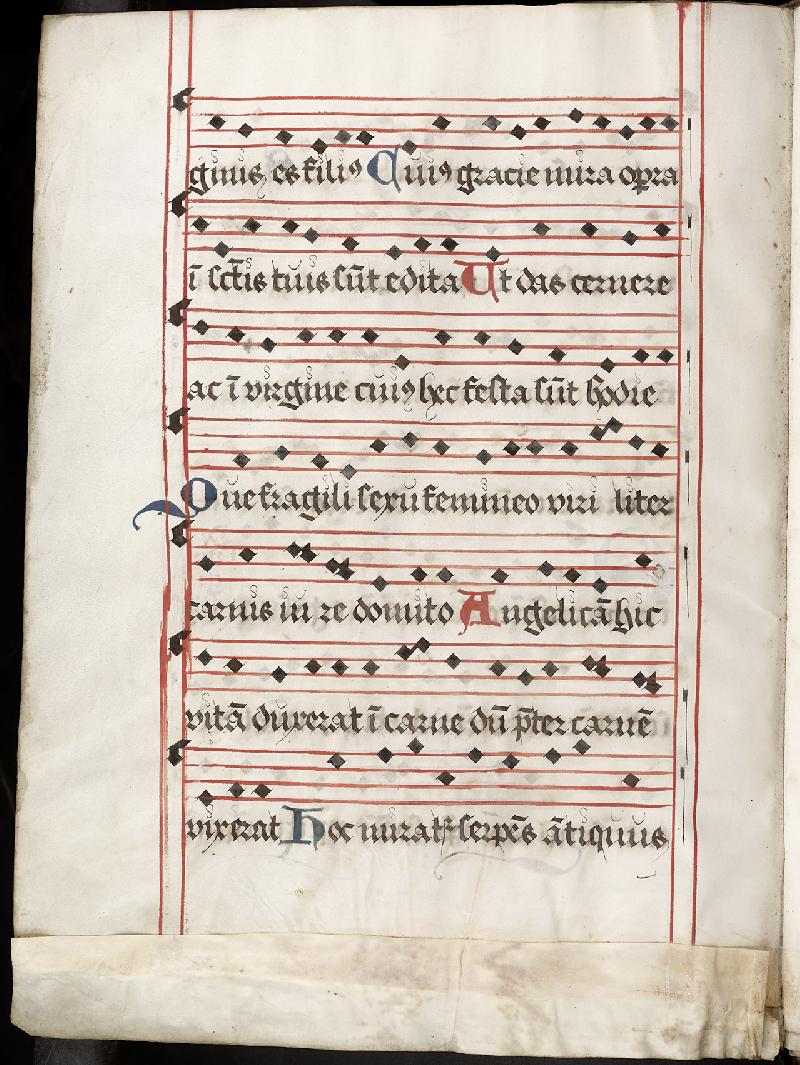 ginis es filiꝰ Cuiꝰ gracie mira oꝑa
ī sc̄tis tuis sūt edita Ut das cernere
ac ī virgine cuiꝰ hec festa sūt hodie
Que fragili sexu femineo viri liter
carnis iu re domito Angelicā hic
vitā duxerat ī carne dū p̄ter carnē
vixerat Hoc mirat᷑ serpēs ātiquus